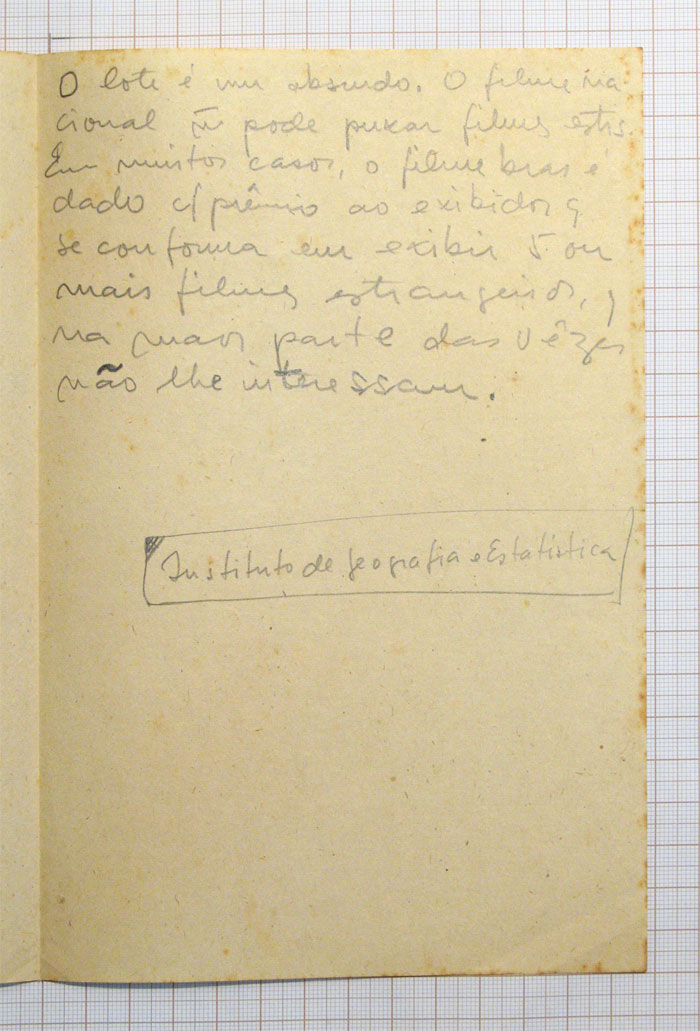 O lote é um absurdo. O filme na
cional ñ pode puxar films estrs.
Em muitos casos, o filme bras é
dado c/ prêmio ao exibidor q
se conforma em exibir 5 ou
mais filmes estrangeiros, q
na maor parte das vêzes
não lhe interessam.
Instituto de geografia e Estatística